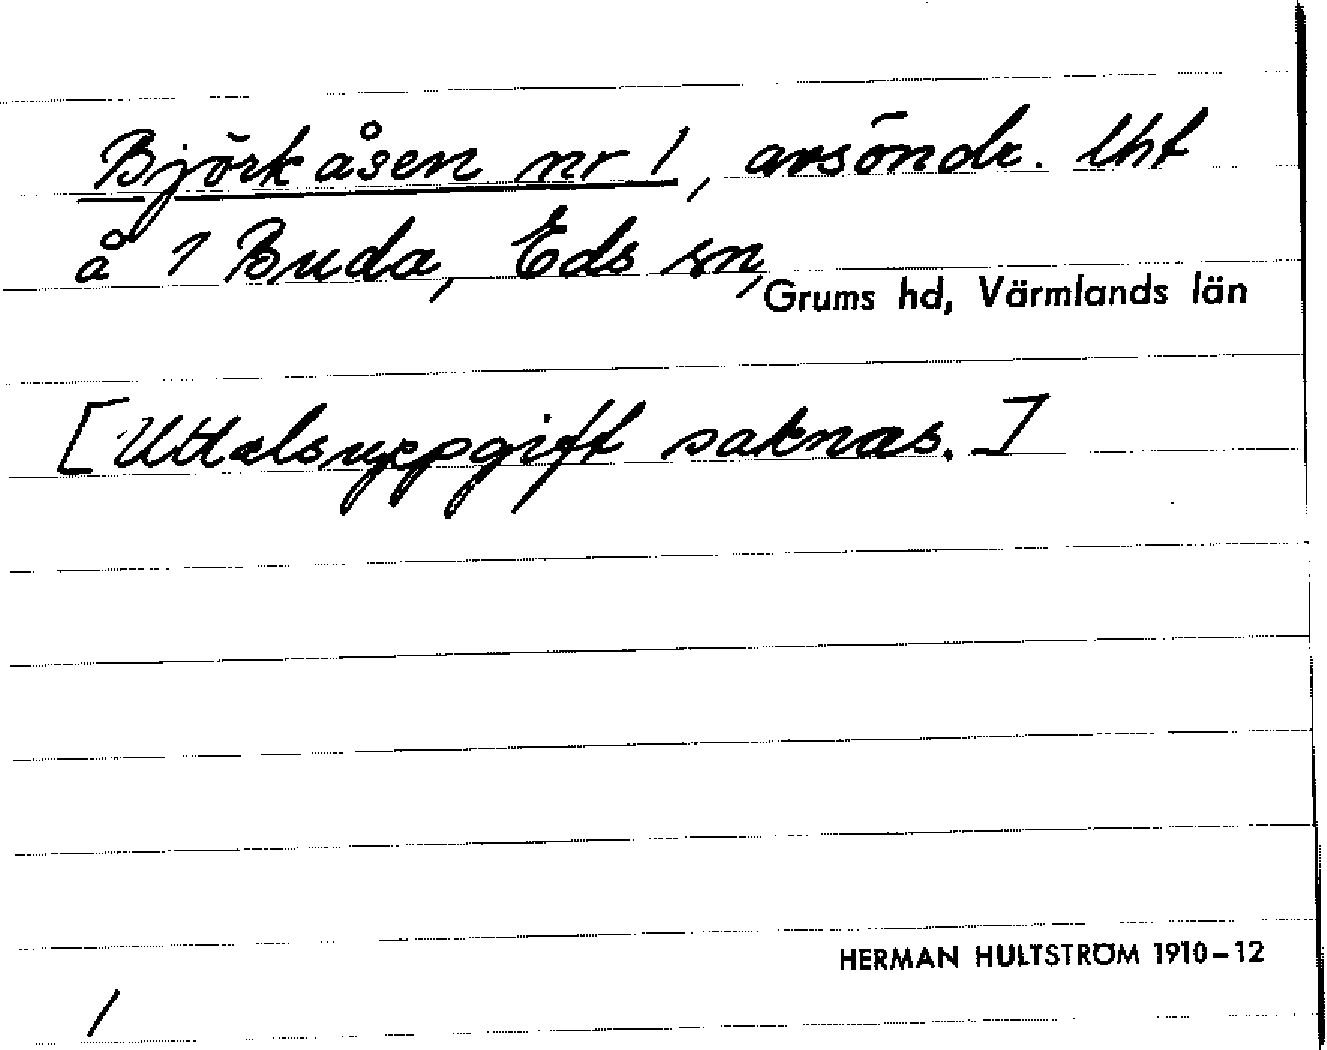 Björkåsen nr 1, avsöndr. lht
å 1 Buda, Eds sn,
Grums hd, Värmlands län
[Uttalsuppgift saknas.]
HERMAN HULTSTRÖM 1910-12
/